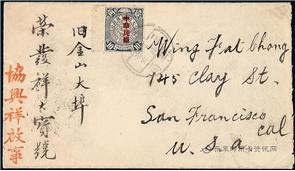 Wing Fat Chong
145 Clay St.
San Francisco
Cal
U.S.a
旧金山大埠
榮發祥大寶號
協興祥啟事
中華民國
10
10